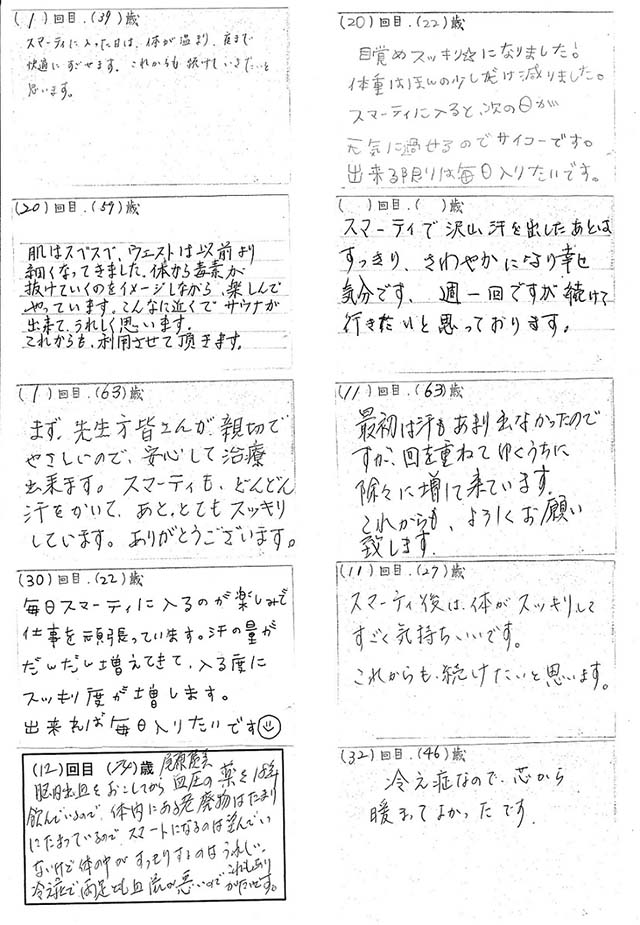 (1)回目.(39)歳
スマーティに入った日は、体が温まり、夜まで
快適にすごせます。これからも続けていきたいと
思います。
(20)回目.(59)歳
肌はスベスベ、ウエストは以前より
細くなってきました。体から毒素が
抜けていくのをイメージしながら、楽しんで
やっています。こんなに近くでサウナが
出来て、うれしく思います。
これからも、利用させて頂きます。
(1)回目.(63)歳
まず、先生方皆さんが、親切で
やさしいので、安心して治療
出来ます。スマーティも、どんどん
汗をかいて、あと、とてもスッキリ
しています。ありがとうございます。
(30)回目.(22)歳
毎日スマーティに入るのが楽しみで
仕事を頑張っています。汗の量が
だんだん増えてきて、入る度に
スッキリ度が増します。
出来れば毎日入りたいです
(12)回目 (74)歳
脳内出血をおこしてから血圧の薬を18年
飲んでいるので、体内にある老廃物はたまり
にたまっているので、スマートになるのは望んでい
ないけど体の中がすっきりするのはうれしい。
冷え症で両足とも血流が悪いのでこれもあり
がたいです。
(20)回目.(22)歳
目覚めスッキリ☆になりました!
体重はほんの少しだけ減りました。
スマーティに入ると、次の日が
元気に過せるのでサイコーです。
出来る限りは毎日入りたいです。
( )回目.( )歳
スマーティで沢山汗を出したあとは
すっきり、さわやかになり幸せ
気分です、週一回ですが続けて
行きたいと思っております。
(11)回目.(63)歳
最初は汗もあまり出なかったので
すが、回を重ねてゆくうちに
除々に増して来ています。
これからも、よろしくお願い
致します.
(11)回目.(27)歳
スマーティ後は、体がスッキリして
すごく気持ちいいです。
これからも、続けたいと思います。
(32)回目.(46)歳
冷え症なので、芯から
暖まってよかったです.